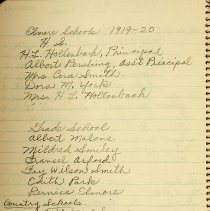 Elmore Schools 1919-20
H. S.
H. L. Hollenback, Principal
Albert Persling, asst Principal
Mrs. Cora Smith.
Dora M. York
Mrs. H. L. Hollenback
Grade School
Albert Malone
Mildred Smiley
Francel Axford
Fay Wilson Smith
Edith Park
Bernice Elmore
Country Schools